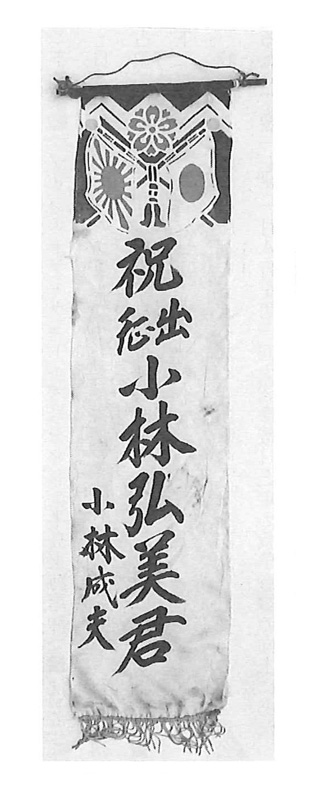 祝出征小林弘美君
小林成夫